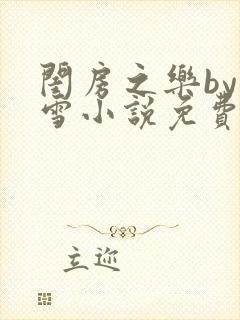 閨房之樂by
雪小說免費
立迩